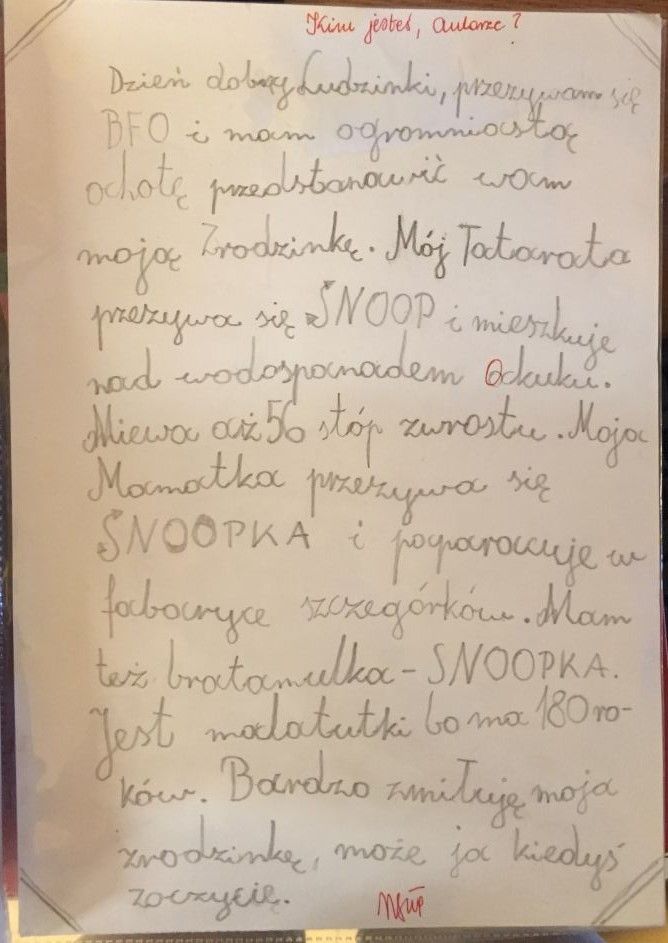 Kim jesteś, autorze?
Dzień dobry Ludzinki, przezywam się
BFO i mam ogromniastą
ochotę przedstanawić wam
moją Zrodzinkę. Mój Tatarata
przezywa się SNOOP i mieszkuje
nad wodospanadem Ockuku.
Miewa aż 56 stóp zwrostu. Moja
Mamatka przezywa się
SNOOPKA i poparacuje w
fabacryce szczegórków. Mam
też bratamulka - SNOOPKA.
Jest malatutki bo ma 180 ro-
ków. Bardzo zmiłuję moja
zrodzinkę, może ja kiedyś
zoczycię.